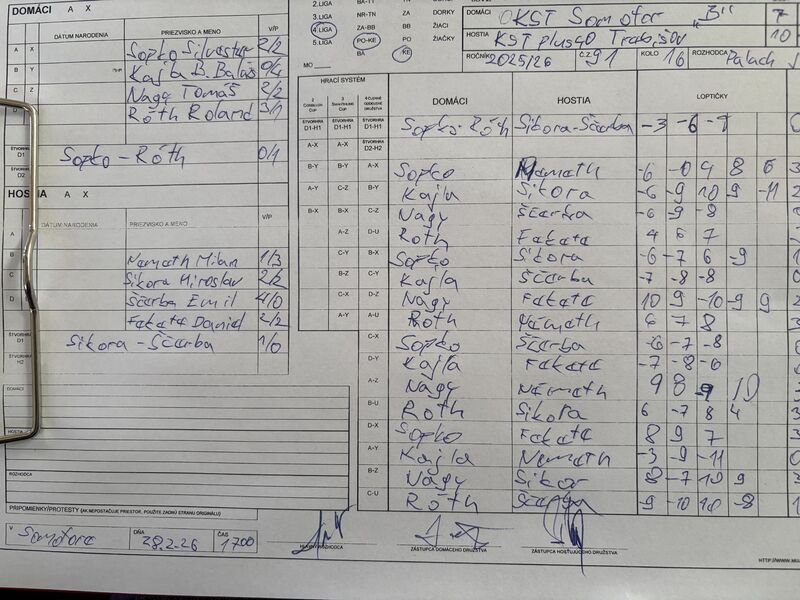 DOMÁCI A X
DÁTUM NARODENIA PRIEZVISKO A MENO V/P
A X Sopko Silvester 2/2
B Y Kajla B. Baláž 0/4
C Z Nagy Tomáš 2/2
Róth Roland 3/1
ŠTVORHRA
D1
D2
Sopko - Róth 0/1
HOSTIA A X
DÁTUM NARODENIA PRIEZVISKO A MENO V/P
A
B Nemath Milan 1/3
C Sikora Miroslav 2/2
D Ščarba Emil 4/0
Fakata Daniel 2/2
ŠTVORHRA
D1
H2
Sikora - Ščarba 1/0
DOMÁCI
HOSTIA
ROZHODCA
PRIPOMIENKY/PROTESTY (AK NEPOSTAČUJE PRIESTOR, POUŽITE ZADNÚ STRANU ORIGINÁLU)
V Somotore DŇA 28.2.26 ČAS 1700
2.LIGA
3.LIGA NR-TN ZA DORKY
4.LIGA ZA-BB BB ŽIACI
5.LIGA PO-KE PO ŽIAČKY
BA KE
MO
DOMÁCI OKST Somotor "B" 7
HOSTIA KST plus40 Trebišov 10
ROČNÍK 2025/26 Č.Z. 91 KOLO 16 ROZHODCA Palach
HRACÍ SYSTÉM DOMÁCI HOSTIA LOPTIČKY
ŠTVORHRA D1-H1 ŠTVORHRA D1-H1 ŠTVORHRA D1-H1 Sopko-Róth Sikora-Ščarba -3 -6 -7 0
A-X A-X ŠTVORHRA D2-H2
B-Y B-Y A-X Sopko Nemath -6 -10 9 8 6 3
A-Y C-Z B-Y Kajla Sikora -6 -9 10 9 -11 2
B-X B-X C-Z Nagy Ščarba -6 -9 -8
A-Z D-U Róth Fakata 4 6 7
C-Y B-X Sopko Sikora -6 -7 6 -9 1
B-Z C-Y Kajla Ščarba -7 -8 -8 0
C-X D-Z Nagy Fakata 10 9 -10 -9 9
A-Y A-U Róth Németh 6 7 8 3
C-X Sopko Ščarba -6 -7 -8
D-Y Kajla Fakata -7 -8 -6
A-Z Nagy Németh 9 8 -9 10
B-U Róth Sikora 6 -7 8 4
D-X Sopko Fakata 8 9 7
A-Y Kajla Nemath -3 -9 -11
B-Z Nagy Sikor 8 -7 10 9 3
C-U Róth Ščarba -9 -10 10 -8 1
HLAVNÝ ROZHODCA
ZÁSTUPCA DOMÁCEHO DRUŽSTVA
ZÁSTUPCA HOSŤUJÚCEHO DRUŽSTVA